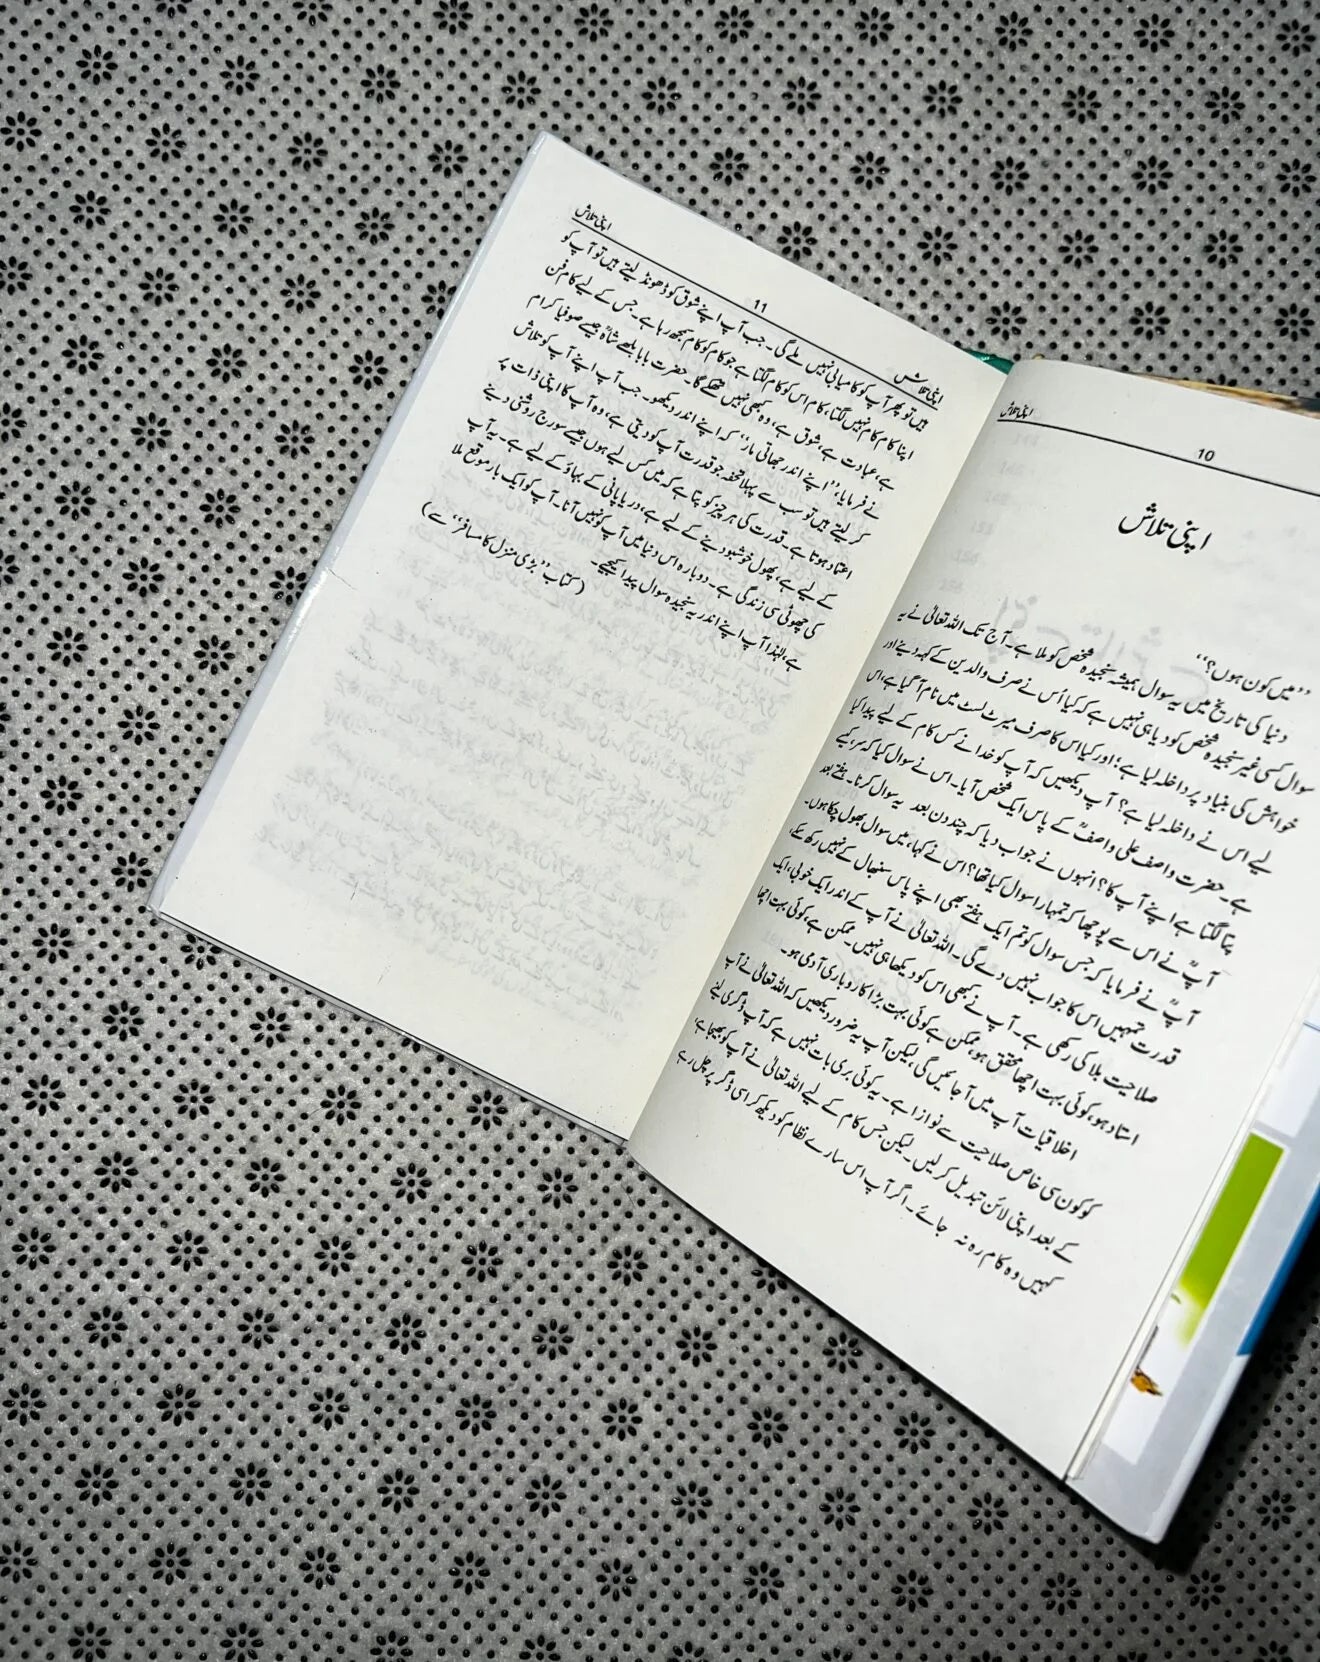 اپنی تلاش
10
اپنی تلاش
”میں کون ہوں؟“
دنیا کی تاریخ میں یہ سوال ہمیشہ سنجیدہ شخص کو ملا ہے۔ آج تک اللہ تعالیٰ نے یہ
سوال کسی غیر سنجیدہ شخص کو دیا ہی نہیں ہے کہ کیا اُس نے صرف والدین کے کہہ دینے اور
خواہش کی بنیاد پر داخلہ لیا ہے؛ اور کیا اس کا صرف میرٹ لسٹ میں نام آ گیا ہے، اس
لیے اس نے داخلہ لیا ہے؟ آپ دیکھیں کہ آپ کو خدا نے کس کام کے لیے پیدا کیا
ہے۔ حضرت واصف علی واصفؒ کے پاس ایک شخص آیا۔ اس نے سوال کیا کہ سر، کیسے
پتا لگتا ہے اپنے آپ کا؟ انہوں نے جواب دیا کہ چند دن بعد یہ سوال کرنا۔ ہفتے بعد
آپؒ نے اس سے پوچھا کہ تمہارا سوال کیا تھا؟ اس نے کہا، میں سوال بھول چکا ہوں۔
آپؒ نے فرمایا کہ جس سوال کو تم ایک ہفتے بھی اپنے پاس سنبھال کے نہیں رکھ سکے،
قدرت تمہیں اس کا جواب نہیں دے گی۔ اللہ تعالیٰ نے آپ کے اندر ایک خوبی، ایک
صلاحیت بلا کی رکھی ہے۔ آپ نے کبھی اس کو دیکھا ہی نہیں۔ ممکن ہے، کوئی بہت اچھا
استاد ہو، کوئی بہت اچھا محقق ہو، ممکن ہے کوئی بہت بڑا کاروباری آدمی ہو۔
اخلاقیات آپ میں آ جائیں گی لیکن آپ یہ ضرور دیکھیں کہ اللہ تعالیٰ نے آپ
کو کون سی خاص صلاحیت سے نوازا ہے۔ یہ کوئی بری بات نہیں ہے کہ آپ ڈگری لینے
کے بعد اپنی لائن تبدیل کر لیں۔ لیکن جس کام کے لیے اللہ تعالیٰ نے آپ کو بھیجا ہے،
کہیں وہ کام رہ نہ جائے۔ اگر آپ اس سارے نظام کو دیکھ کر اسی ڈگر پر چل رہے
اپنی تلاش
11
اپنی تلاش
ہیں تو پھر آپ کو کامیابی نہیں ملے گی۔ جب آپ اپنے شوق کو ڈھونڈ لیتے ہیں تو آپ کو
اپنا کام کام نہیں لگتا، کام اس کو کام لگتا ہے جو کام کو کام سمجھ رہا ہے۔ جس کے لیے کام فن
ہے، عبادت ہے، شوق ہے، وہ کبھی نہیں تھکے گا۔ حضرت بابا بلھے شاہؒ جیسے صوفیا کرام
نے فرمایا، ”اپنے اندر جھاتی مار“ کہ اپنے اندر دیکھو۔ جب آپ اپنے آپ کو تلاش
کر لیتے ہیں تو سب سے پہلا تحفہ جو قدرت آپ کو دیتی ہے، وہ آپ کا اپنی ذات پر
اعتماد ہوتا ہے۔ قدرت کی ہر چیز کو پتا ہے کہ میں کس لیے ہوں جیسے سورج روشنی دینے
کے لیے ہے، پھول خوشبو دینے کے لیے ہے، دریا پانی کے بہاؤ کے لیے ہے۔ یہ آپ
کی چھوٹی سی زندگی ہے۔ دوبارہ اس دنیا میں آپ کو نہیں آنا۔ آپ کو ایک بار موقع ملا
ہے، لہٰذا آپ اپنے اندر یہ سنجیدہ سوال پیدا کیجیے۔
(کتاب ”بڑی منزل کا مسافر“ سے)